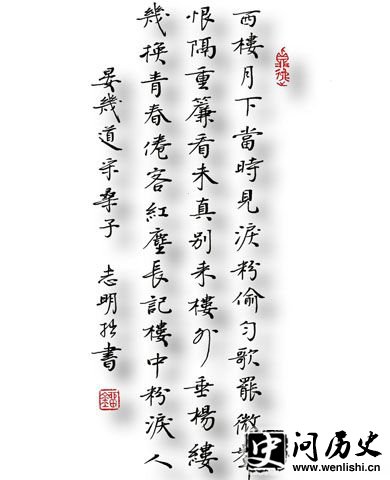 西樓月下當時見淚粉偷勻歌罷微
恨隔重簾看未真別來樓外垂楊縷
幾換青春倦客紅塵長記樓中粉淚人
晏幾道采桑子 志明拙書
史 问历史
www.wenlishi.cn